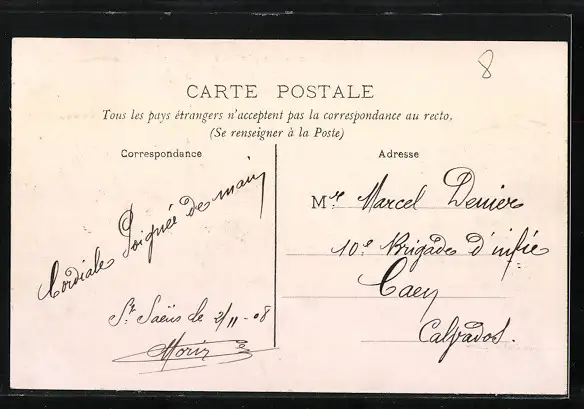 8
CARTE POSTALE
Tous les pays étrangers n'acceptent pas la correspondance au recto.
(Se renseigner à la Poste)
Correspondance
Cordiale Poignée de main
St Saëns le 2/11-08
Morin
Adresse
Mr Marcel Denier
10e Brigade d'infie
Caen
Calvados.